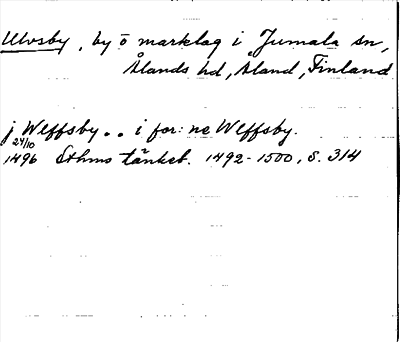 Ulvsby, by o marklag i Jumala sn,
Ålands hd, Åland, Finland
j Wlffsby .. i for:ne Wlffsby.
24/10
1496 Sthms tänkeb. 1492-1500, s. 314